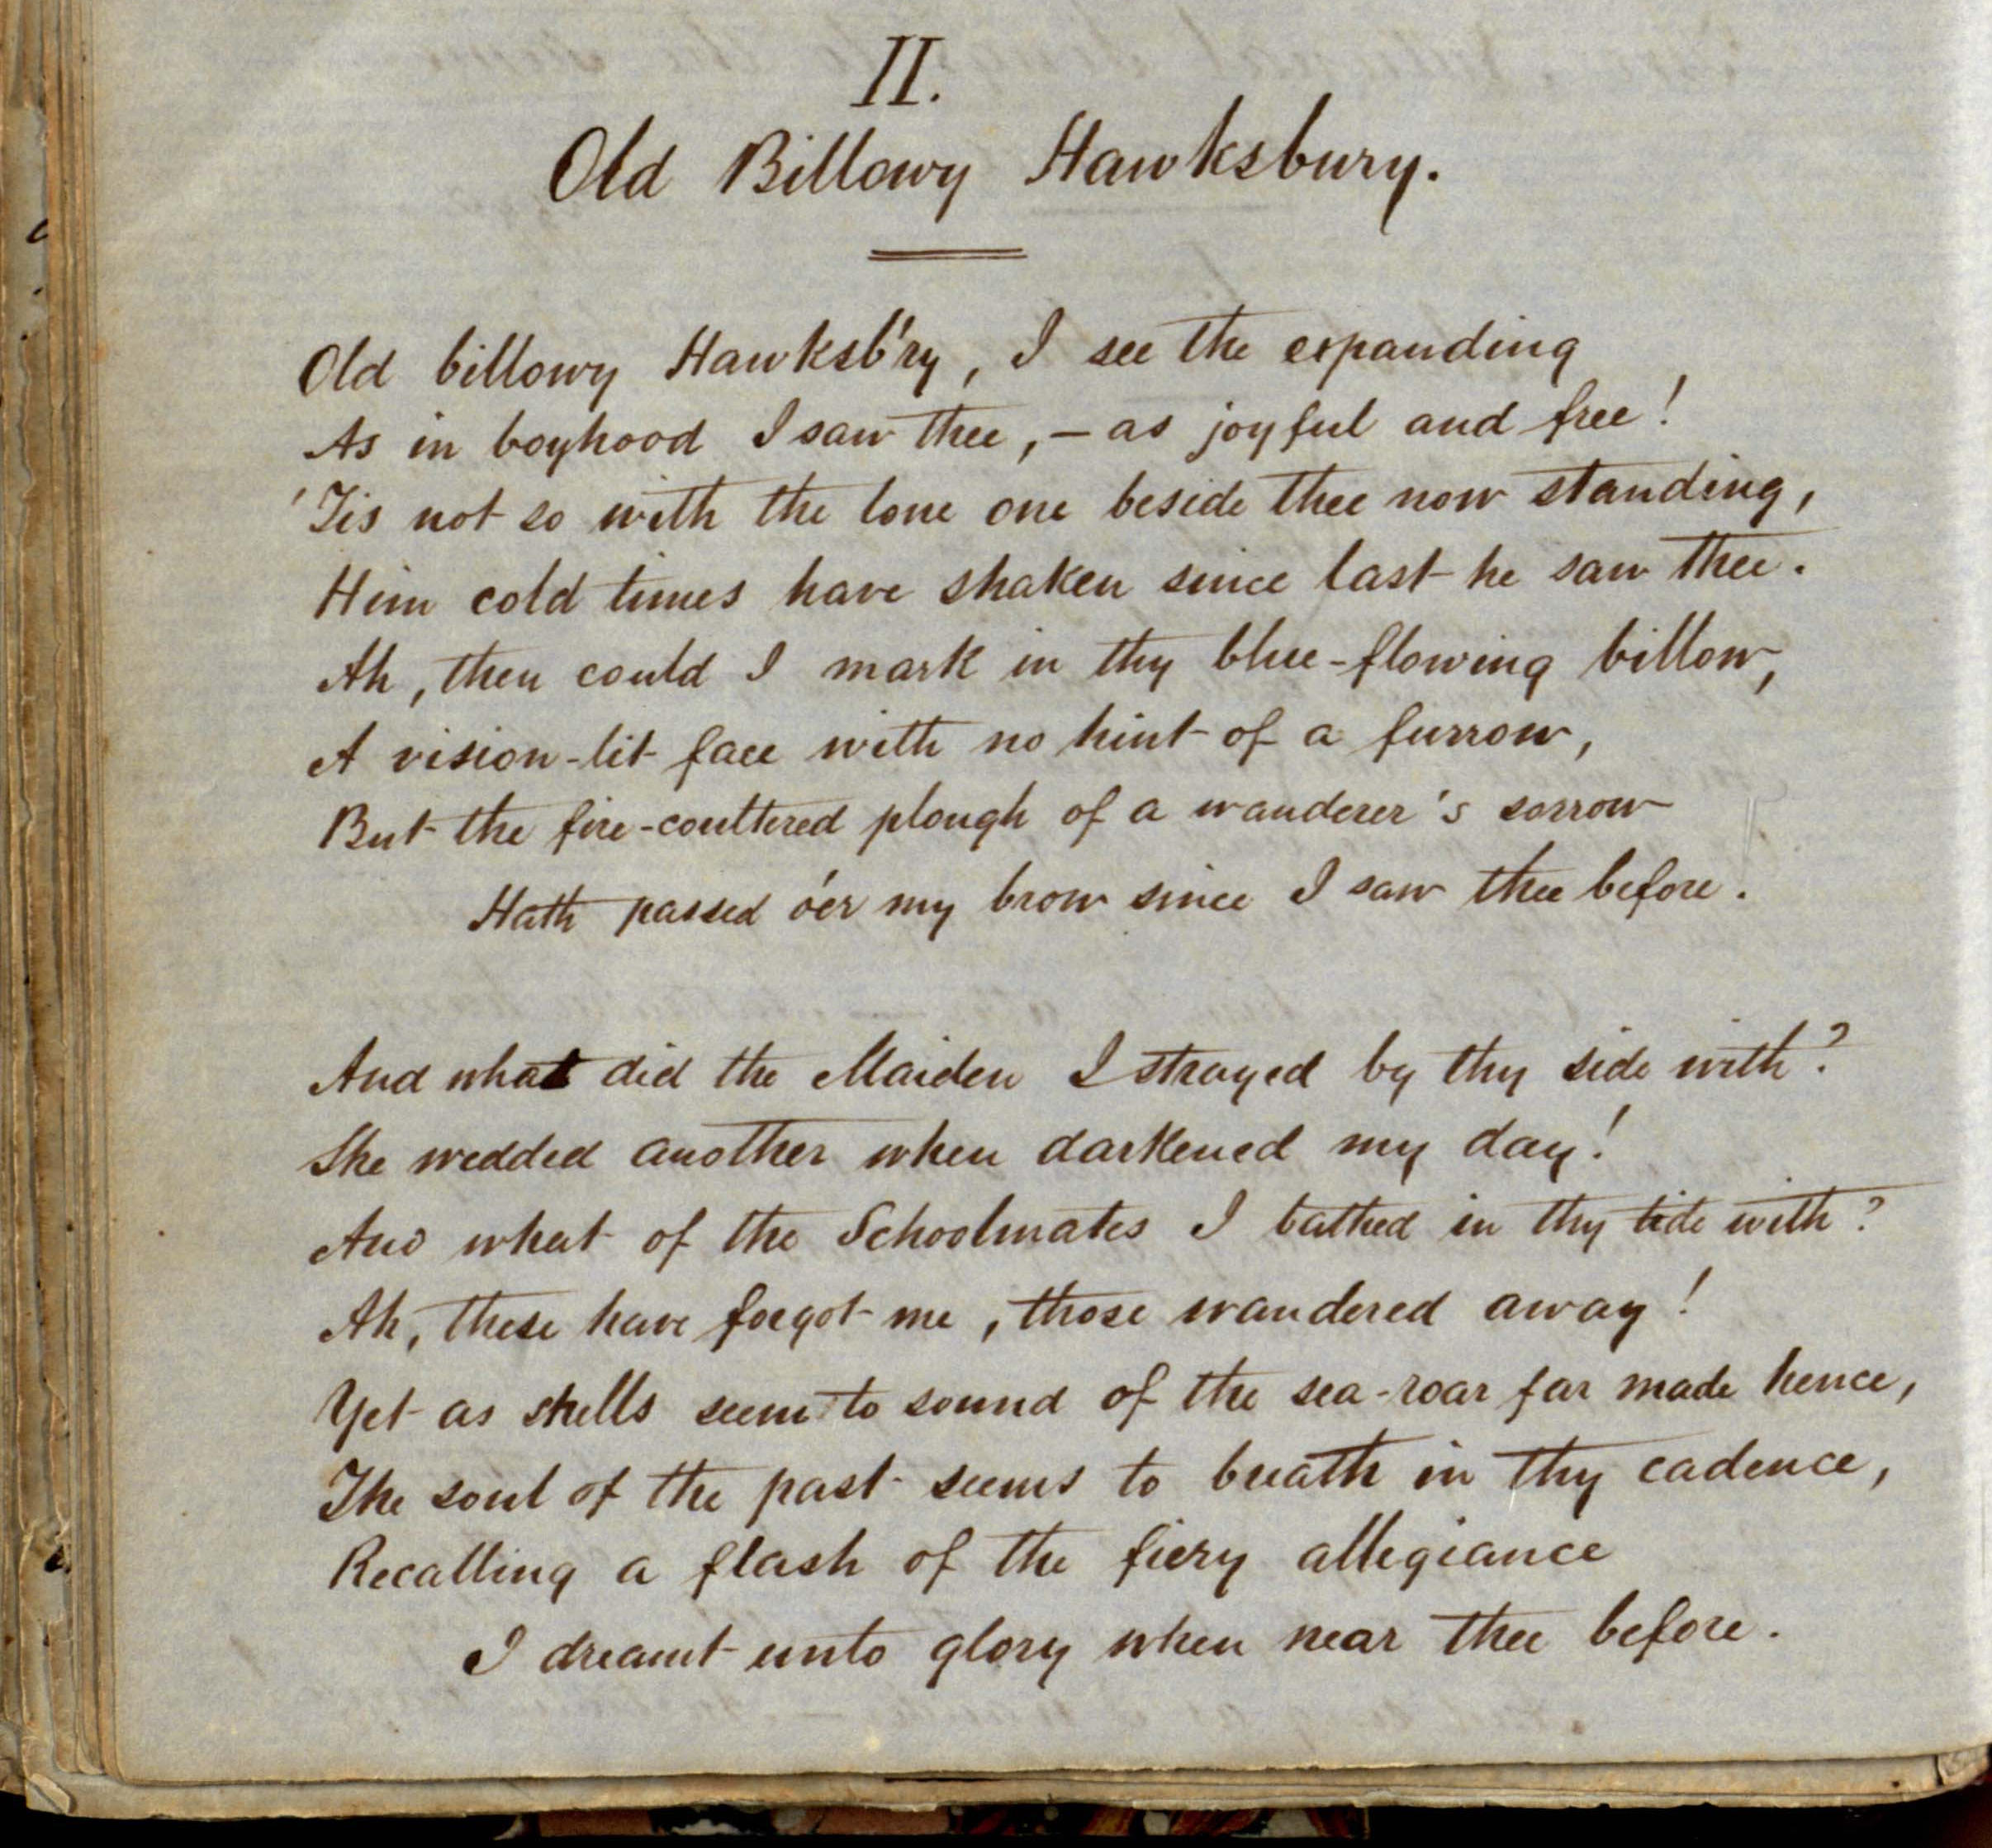 II.
Old Billowy Hawksbury.
Old billowy Hawksb'ry, I see the expanding
As in boyhood I saw thee, – as joyful and free!
'Tis not so with the lone one beside thee now standing,
Him cold times have shaken since last he saw thee.
Ah, then could I mark in thy blue-flowing billow,
A vision-lit face with no hint of a furrow,
But the fire-coultered plough of a wanderer's sorrow
Hath passed o'er my brow since I saw thee before.
And what did the Maiden I strayed by thy side with?
She wedded another when darkened my day!
And what of the Schoolmates I bathed in thy tide with?
Ah, these have forgot me, those wandered away!
Yet as shells seem to sound of the sea-roar far made hence,
The soul of the past seems to breath in thy cadence,
Recalling a flash of the fiery allegiance
I dreamt unto glory when near thee before.